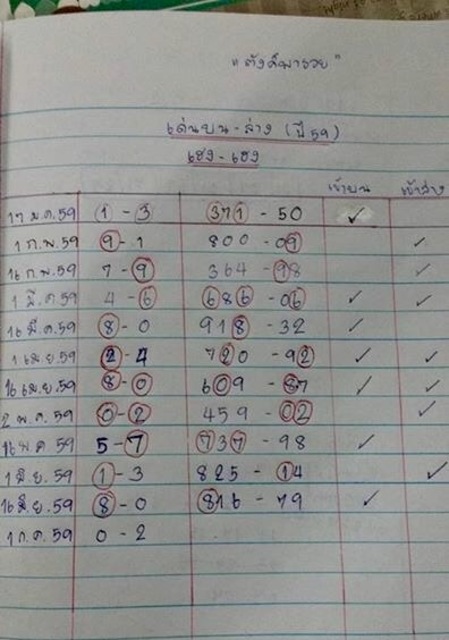 "ตังค์มารวย"
เด่นบน-ล่าง (ปี 59)
เฮง-เฮง
เข้าบน เข้าล่าง
17 ม.ค. 59 1 - 3 371 - 50 ✓
1 ก.พ. 59 9 - 1 800 - 09 ✓
16 ก.พ. 59 7 - 9 364 - 98 ✓
1 มี.ค. 59 4 - 6 686 - 06 ✓ ✓
16 มี.ค. 59 8 - 0 918 - 32 ✓
1 เม.ย. 59 2 - 4 720 - 92 ✓ ✓
16 เม.ย. 59 8 - 0 609 - 87 ✓ ✓
2 พ.ค. 59 0 - 2 459 - 02 ✓
16 พ.ค 59 5 - 7 737 - 98 ✓
1 มิ.ย. 59 1 - 3 825 - 14 ✓
16 มิ.ย. 59 8 - 0 816 - 79 ✓
1 ก.ค. 59 0 - 2